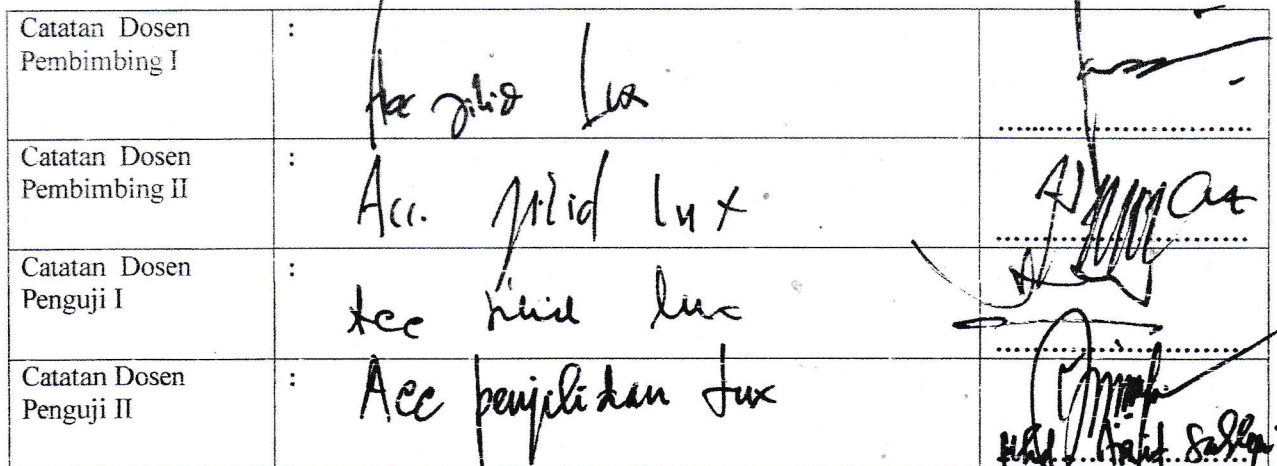 Catatan Dosen :
Pembimbing I
Acc jilid Lux
Catatan Dosen :
Pembimbing II
Acc. jilid lux
Catatan Dosen :
Penguji I
Acc jilid lux
Catatan Dosen :
Penguji II
Acc penjilidan lux